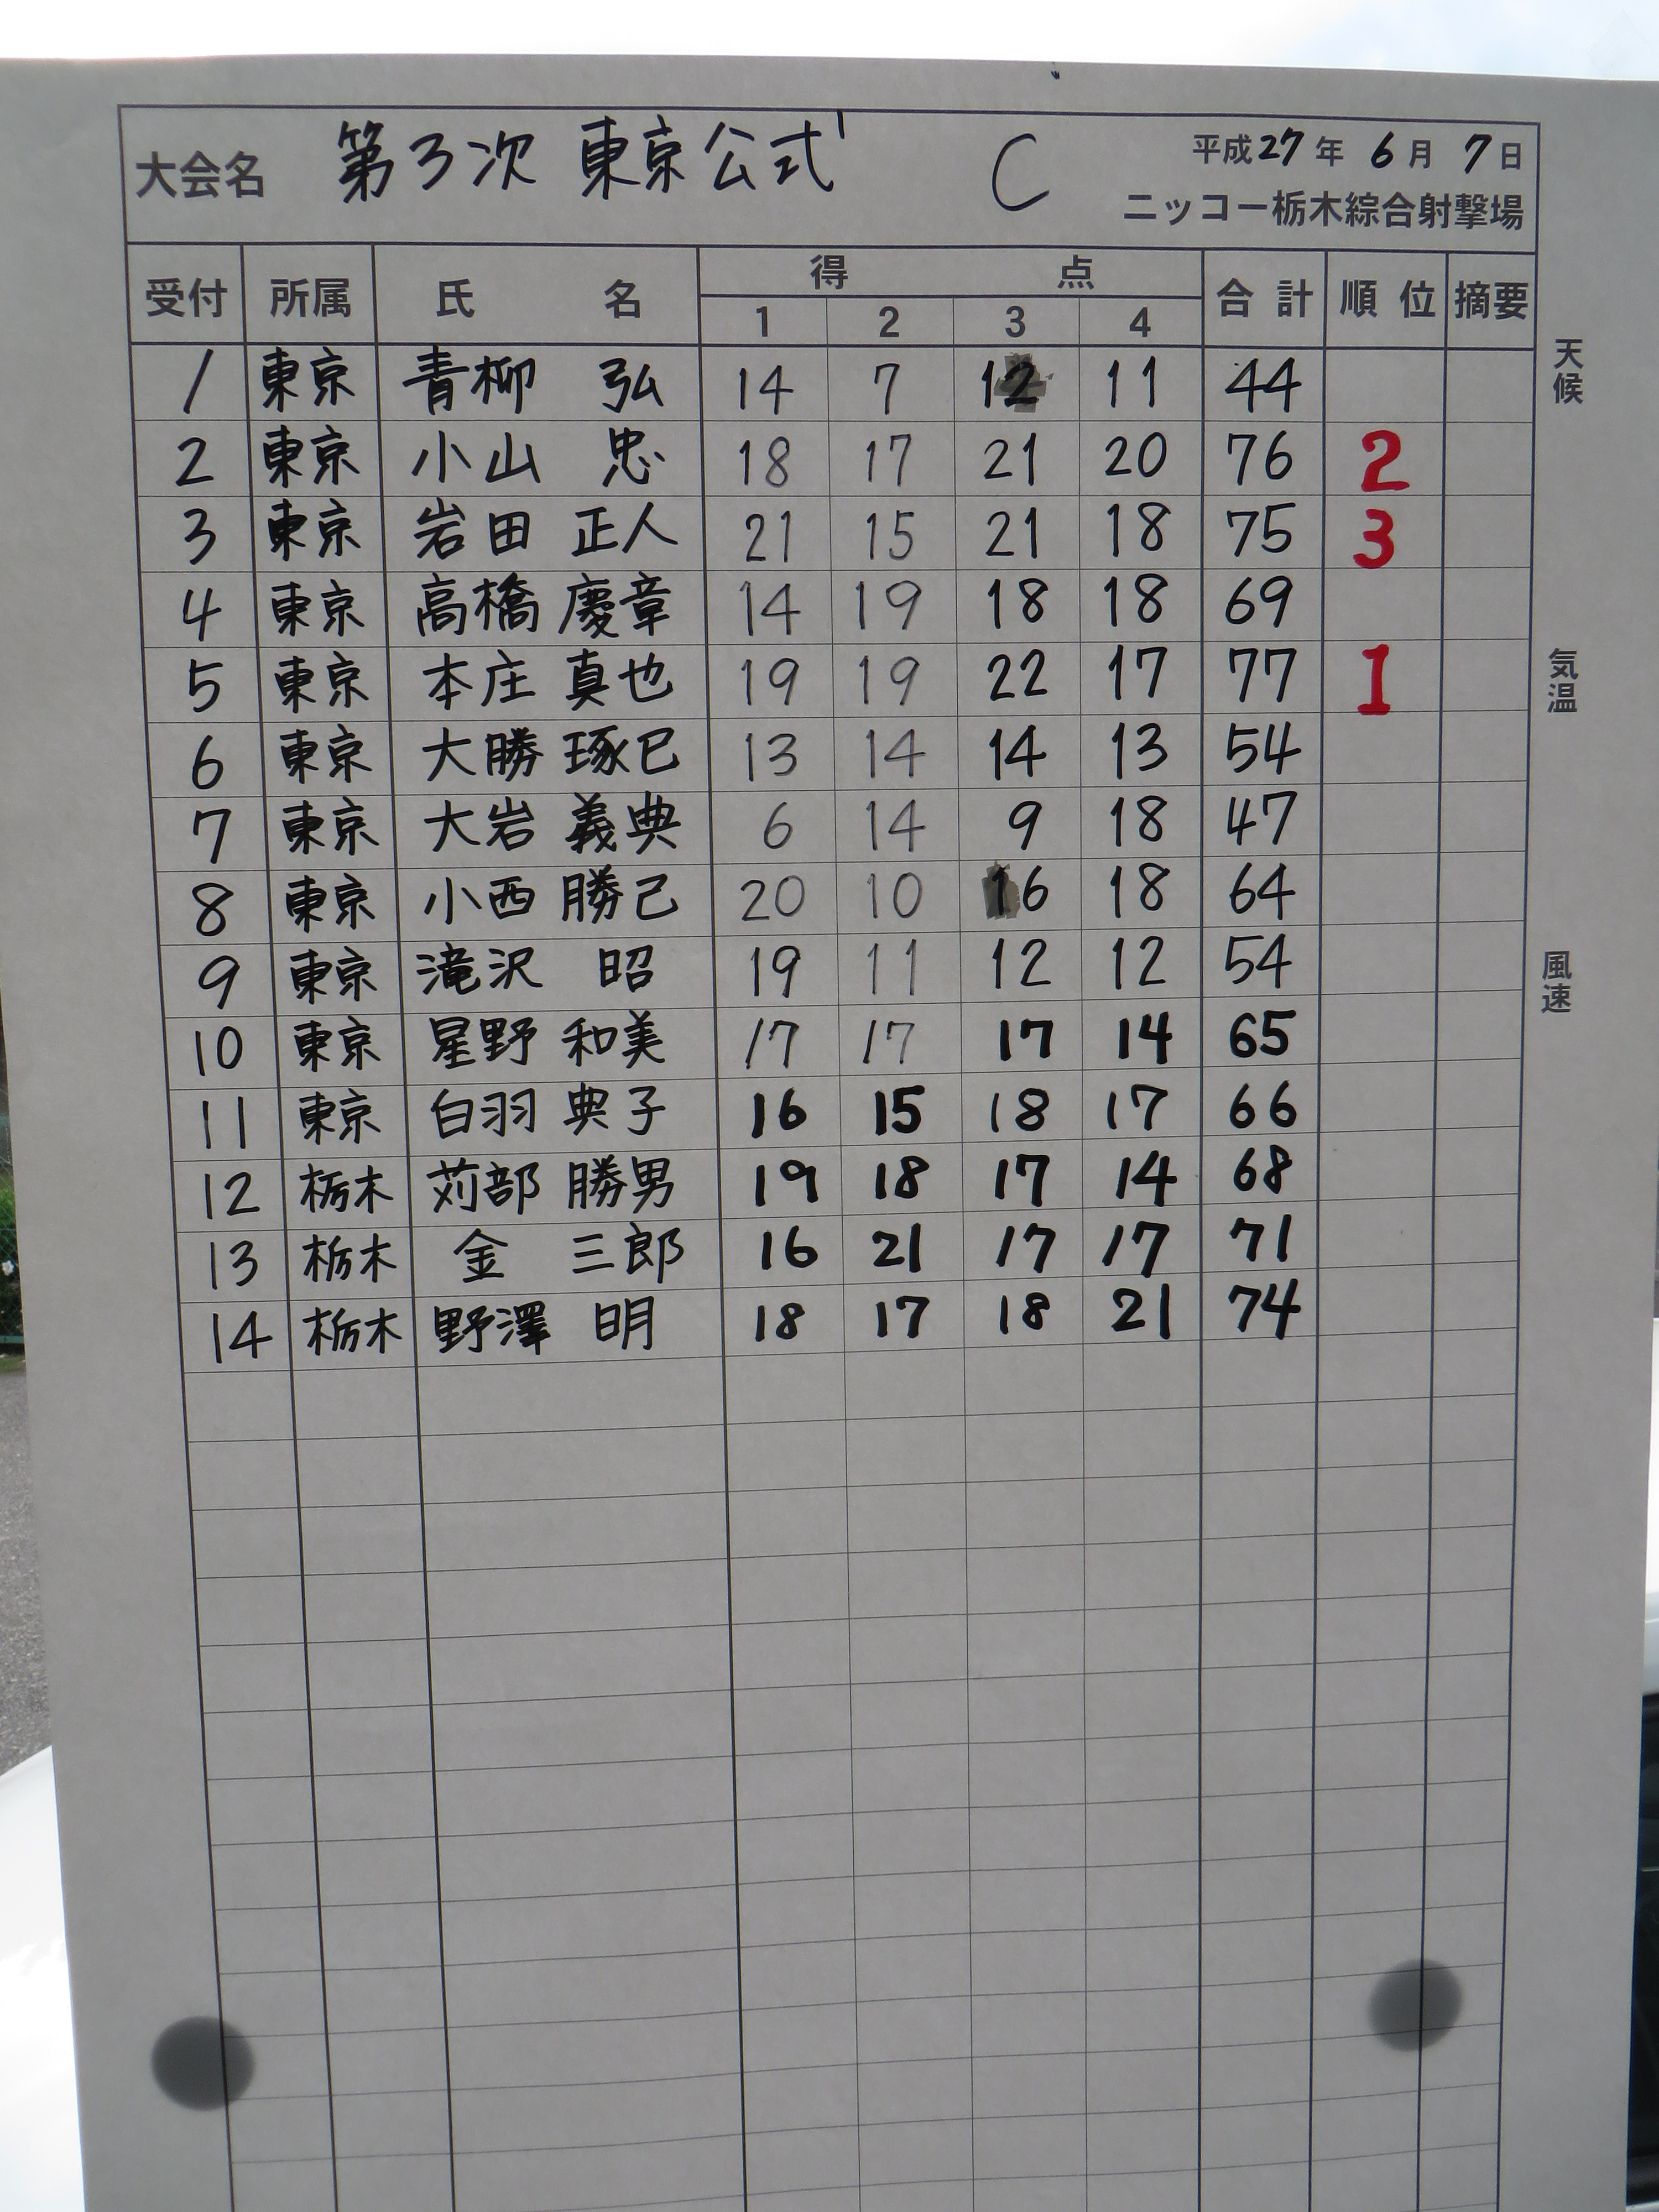 大会名 第3次 東京公式 C 平成27年 6月 7日
ニッコー栃木綜合射撃場
受付 所属 氏名 得点 合計 順位 摘要
1 2 3 4
1 東京 青柳 弘 14 7 12 11 44
2 東京 小山 忠 18 17 21 20 76 2
3 東京 岩田 正人 21 15 21 18 75 3
4 東京 高橋 慶章 14 19 18 18 69
5 東京 本庄 真也 19 19 22 17 77 1
6 東京 大勝 琢巳 13 14 14 13 54
7 東京 大岩 義典 6 14 9 18 47
8 東京 小西 勝己 20 10 16 18 64
9 東京 滝沢 昭 19 11 12 12 54
10 東京 星野 和美 17 17 17 14 65
11 東京 白羽 典子 16 15 18 17 66
12 栃木 苅部 勝男 19 18 17 14 68
13 栃木 金 三郎 16 21 17 17 71
14 栃木 野澤 明 18 17 18 21 74
天候
気温
風速